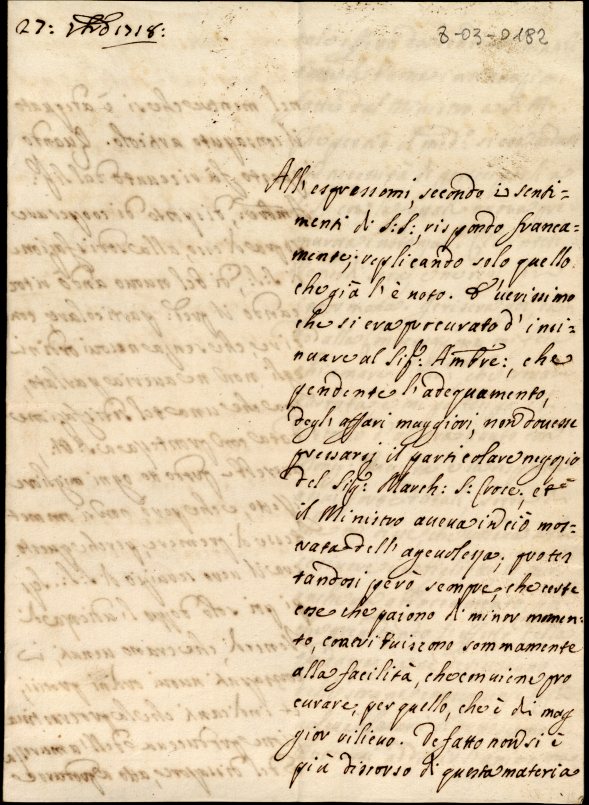 27: 8bre 1718:
8-03-0182
All'espressomi, secondo i senti=
menti di S:S:, rispondo franca=
mente, replicando solo quello
che già l'è noto. È verissimo
che si era procurato d'insi=
nuare al Sigr: Ambre:, che
pendente l'adeguamento,
degl'affari maggiori, non dovesse
pressarsi il particolare negozio
del Sigr: March: S: Croce, et è
il Ministro aveva in ciò mos=
trata dell'agevolezza; protes
tandosi però sempre, che coste
cose che paiono di minor momen=
to, contribuiscono sommamente
alla facilità, che conviene pro
curare, per quello, che è di mag
gior rilievo. De fatto non si è
più discorso di questa materia